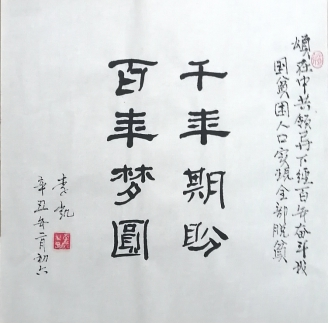 颂在中共领导下经百年奋斗我
国贫困人口实现全部脱贫
千年期盼
百年梦圓
李凯
辛丑年二月初六